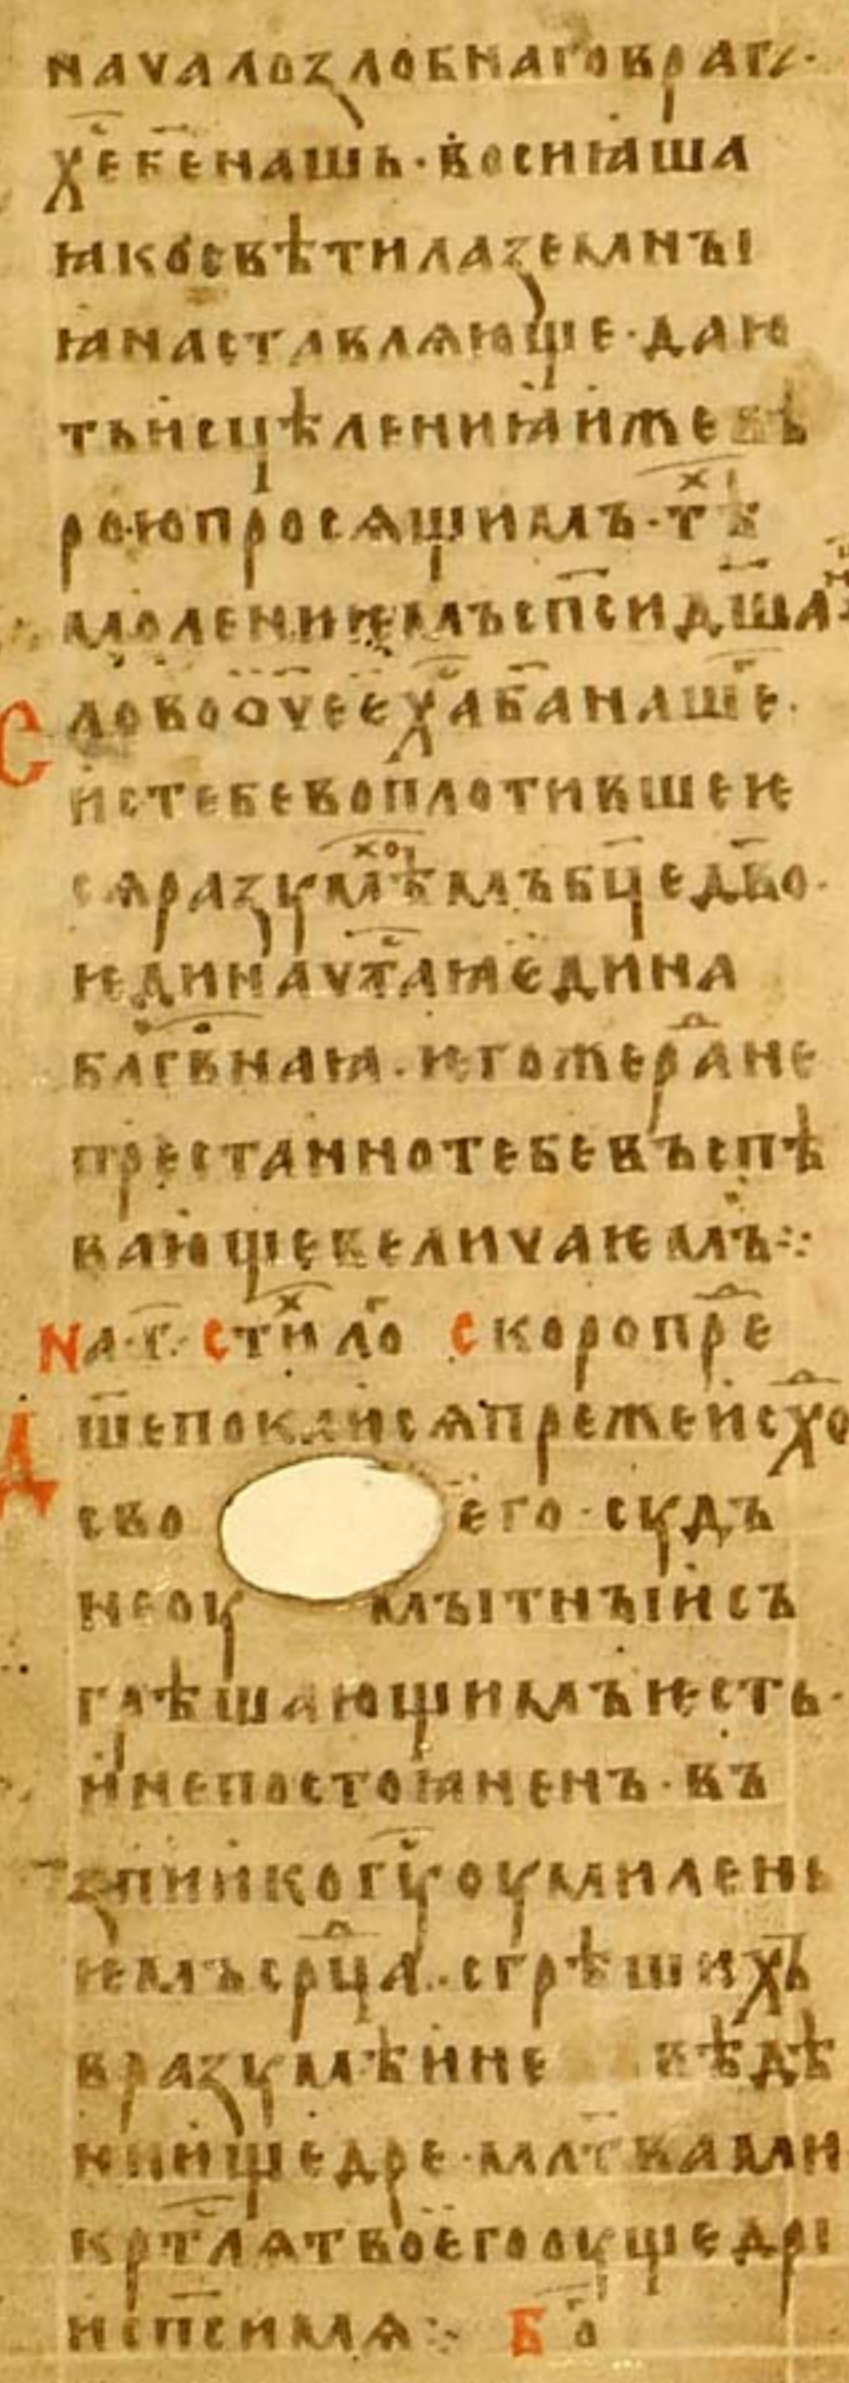 началозлобнаговрага·
х҃ебе҃нашь·восиꙗша
ꙗкосвѣтилаземлнꙑ
ꙗнаставлѧюще·даю
тьисцѣлениꙗижевѣ
роюпросѧщимъ·тѣ
молениѥмъсп҃сидш҃а
Словооч҃еех҃аба҃наше·
истебевоплотившеѥ
сѧразꋋмѣмъбц҃едв҃о·
ѥдиначт҃аꙗединa
блг҃внаꙗ·ѥгожеране
престаннотебевъспѣ
вающевеличаѥмъ⁘
На·г҃·стих ло скоропре
Дшепокаисѧпрежеисхо
сво его·сꋋдъ
неоꋋ мꙑтнꙑисъ
грѣшающимъѥсть·
инепостоꙗненъ·въ
зпииког҃ꋋоꋋмилень
ѥмъсрц҃а·сгрѣшихъ
вразꋋмѣиине вѣдѣ
ниищедре·млт҃вами
крт҃лѧтвоегооꋋщедри
исп҃симѧ⁘ Бо